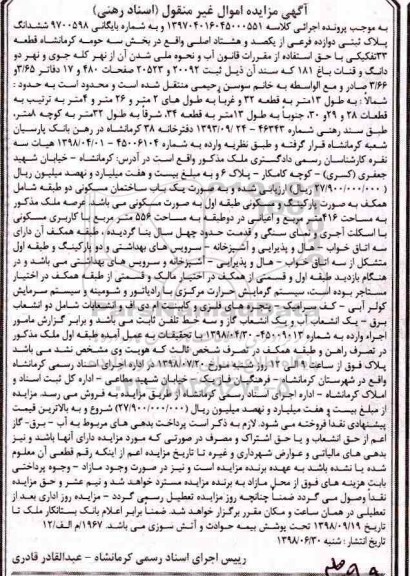 آگهی مزایده اموال غیر منقول (اسناد رهنی)
به موجب پرونده اجرائی کلاسه ۱۳۹۷۰۴۰۱۶۰۴۵۰۰۰۵۵۱ و به شماره بایگانی ۹۷۰۰۵۹۸ ششدانگ
پلاک ثبتی دوازده فرعی از یکصد و هشتاد اصلی واقع در بخش سه حومه کرمانشاه قطعه
۳۳تفکیکی با حق استفاده از مقررات قانون آب و نحوه ملی شدن آن از نهر کله جوی و نهر دو
دانگه و قنات باغ ۱۸۱ که سند آن ذیل ثبت ۲۰۰۹۲ و ۲۰۵۲۳ صفحات ۴۸۰ و ۱۷ دفاتر ۳/۶۵و
۳/۶۶ صادر و مع الواسطه به خانم سوسن رحیمی منتقل شده است و محدود است به حدود :
شمالاً : به طول ۱۳متر به قطعه ۳۲ و غرباً به طول های ۲ متر و ۲۶ متر و ۴متر به ترتیب به
قطعات ۲۸ و ۲۹ و ۳۰، جنوباً به طول ۱۳متر به قطعه ۳۴، شرقاً به طول ۳۲متر به کوچه ۸متر،
طبق سند رهنی شماره ۴۶۳۴۳ – ۱۳۹۳/۰۹/۲۴ دفترخانه ۳۸ کرمانشاه در رهن بانک پارسیان
شعبه کرمانشاه قرار گرفته و طبق نظریه وارده به شماره ۴۵۰۰۶۱۰۴ – ۱۳۹۸/۰۴/۰۱ هیات سه
نفره کارشناسان رسمی دادگستری ملک مذکور واقع است در آدرس: کرمانشاه – خیابان شهید
جعفری (کسری) – کوچه کامکار – پلاک ۶ و به مبلغ بیست و هفت میلیارد و نهصد میلیون ریال
(۲۷/۹۰۰/۰۰۰/۰۰۰ ریال) ارزیابی صورت یک باب ساختمان مسکونی دو طبقه شامل
همکف به صورت پارکینگ و مسکونی طبقه اول به صورت مسکونی می باشد. عرصه ملک مذکور
به مساحت ۴۱۶متر مربع و اعیانی در دوطبقه به مساحت ۵۵۶ متر مربع با کاربری مسکونی
با اسکلت آجری و نمای سنگی و قدمت حدود چهل سال بنا گردیده ، طبقه همکف آن دارای
سه اتاق خواب – هال و پذیرایی و آشپزخانه – سرویس های بهداشتی و دو پارکینگ و طبقه اول
متشکل از سه اتاق خواب – هال و پذیرایی – آشپزخانه و سرویس های بهداشتی می باشد و در
هنگام بازدید طبقه اول و قسمتی از همکف در اختیار مالک و قسمتی از طبقه همکف در اختیار
مستاجر بوده است، سیستم گرمایش حرارت مرکزی با رادیاتور و شومینه و سیستم سرمایش
کولر آبی – کف سرامیک – درب های فلزی و کابینت ام دی اف و انشعابات شامل دو انشعاب
برق – یک انشعاب آب و یک انشعاب گاز و سه خط تلفن ثابت می باشد و برابر گزارش مامور
اجراء وارده به شماره ۴۵۰۰۹۰۱۳ – ۱۳۹۸/۰۴/۳۰ با تحقیقات به عمل آمده طبقه اول ملک مذکور
در تصرف راهن و طبقه همکف در تصرف شخص ثالث که هویت وی مشخص نشد می باشد
پلاک فوق از ساعت ۹ الی ۱۲ روز شنبه مورخ ۱۳۹۸/۰۷/۲۰ در اداره اجرای اسناد رسمی کرمانشاه
واقع در شهرستان کرمانشاه – فرهنگیان فاز یک – خیابان شهید مطاعی – اداره کل ثبت اسناد و
املاک کرمانشاه – اداره اجرای اسناد رسمی کرمانشاه از طریق مزایده به فروش می رسد. مزایده
از مبلغ بیست و هفت میلیارد و نهصد میلیون ریال (۲۷/۹۰۰/۰۰۰/۰۰۰) شروع و به بالاترین قیمت
پیشنهادی نقداً فروخته می شود. لازم به ذکر است پرداخت بدهی های مربوط به آب – برق- گاز
اعم از حق انشعاب و یا حق اشتراک و مصرف در صورتی که مورد مزایده دارای آنها باشد و نیز
بدهی های مالیاتی و عوارض شهرداری و غیره تا تاریخ مزایده اعم از اینکه رقم قطعی آن معلوم
شده یا نشده باشد به عهده برنده مزایده است و نیز در صورت وجود مازاد – وجوه پرداختی
بابت هزینه های فوق از محل مازاد به برنده مزایده مسترد خواهد شد و نیم عشر و حق مزایده
نقداً وصول می گردد ضمناً چنانچه روز مزایده تعطیل رسمی گردد – مزایده روز اداری بعد از
تعطیلی در همان ساعت و مکان مقرر برگزار خواهد شد. ضمناً برابر اعلام بانک بستانکار ملک تا
تاریخ ۱۳۹۸/۰۹/۱۹ تحت پوشش بیمه حوادث و آتش سوزی می باشد. ۱۹۶۷/م الف/۱۲
تاریخ انتشار : شنبه ۱۳۹۸/۰۶/۳۰
رییس اجرای اسناد رسمی کرمانشاه – عبدالقادر قادری